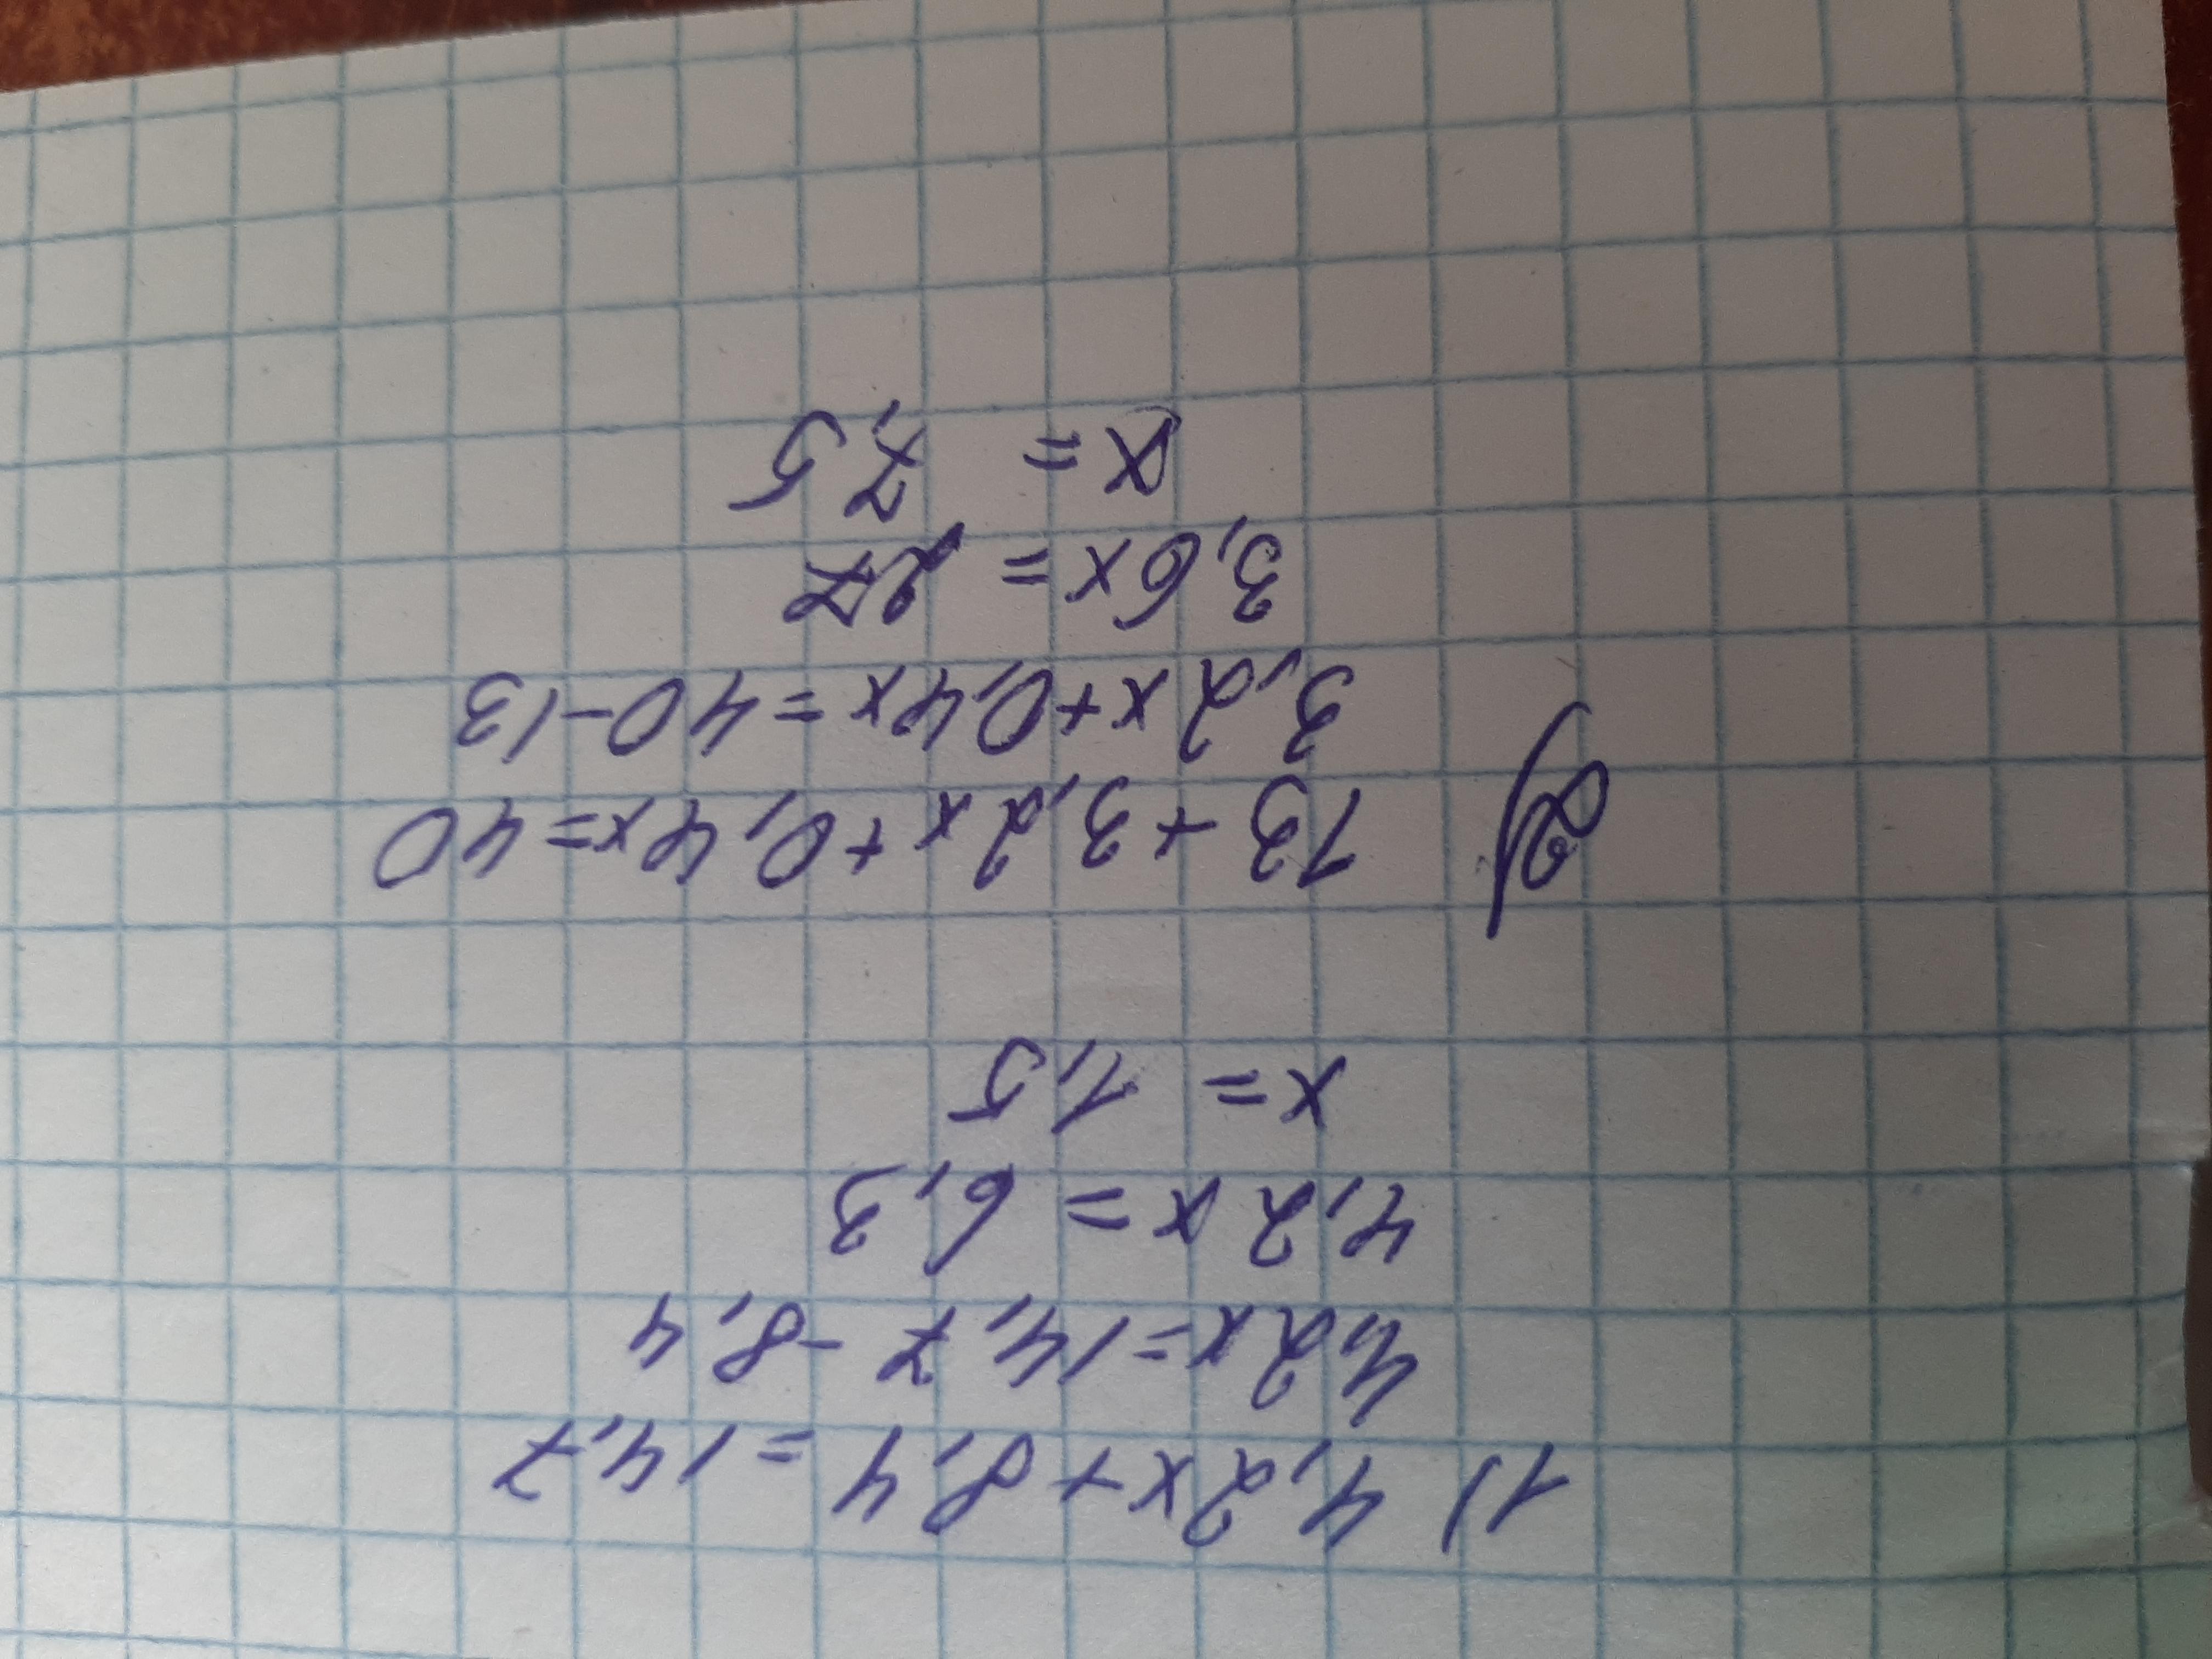 1) 4,2x + 8,4 = 14,7
4,2x = 14,7 - 8,4
4,2x = 6,3
x = 1,5
2) 13 + 3,2x + 0,4x = 40
3,2x + 0,4x = 40 - 13
3,6x = 27
x = 7,5